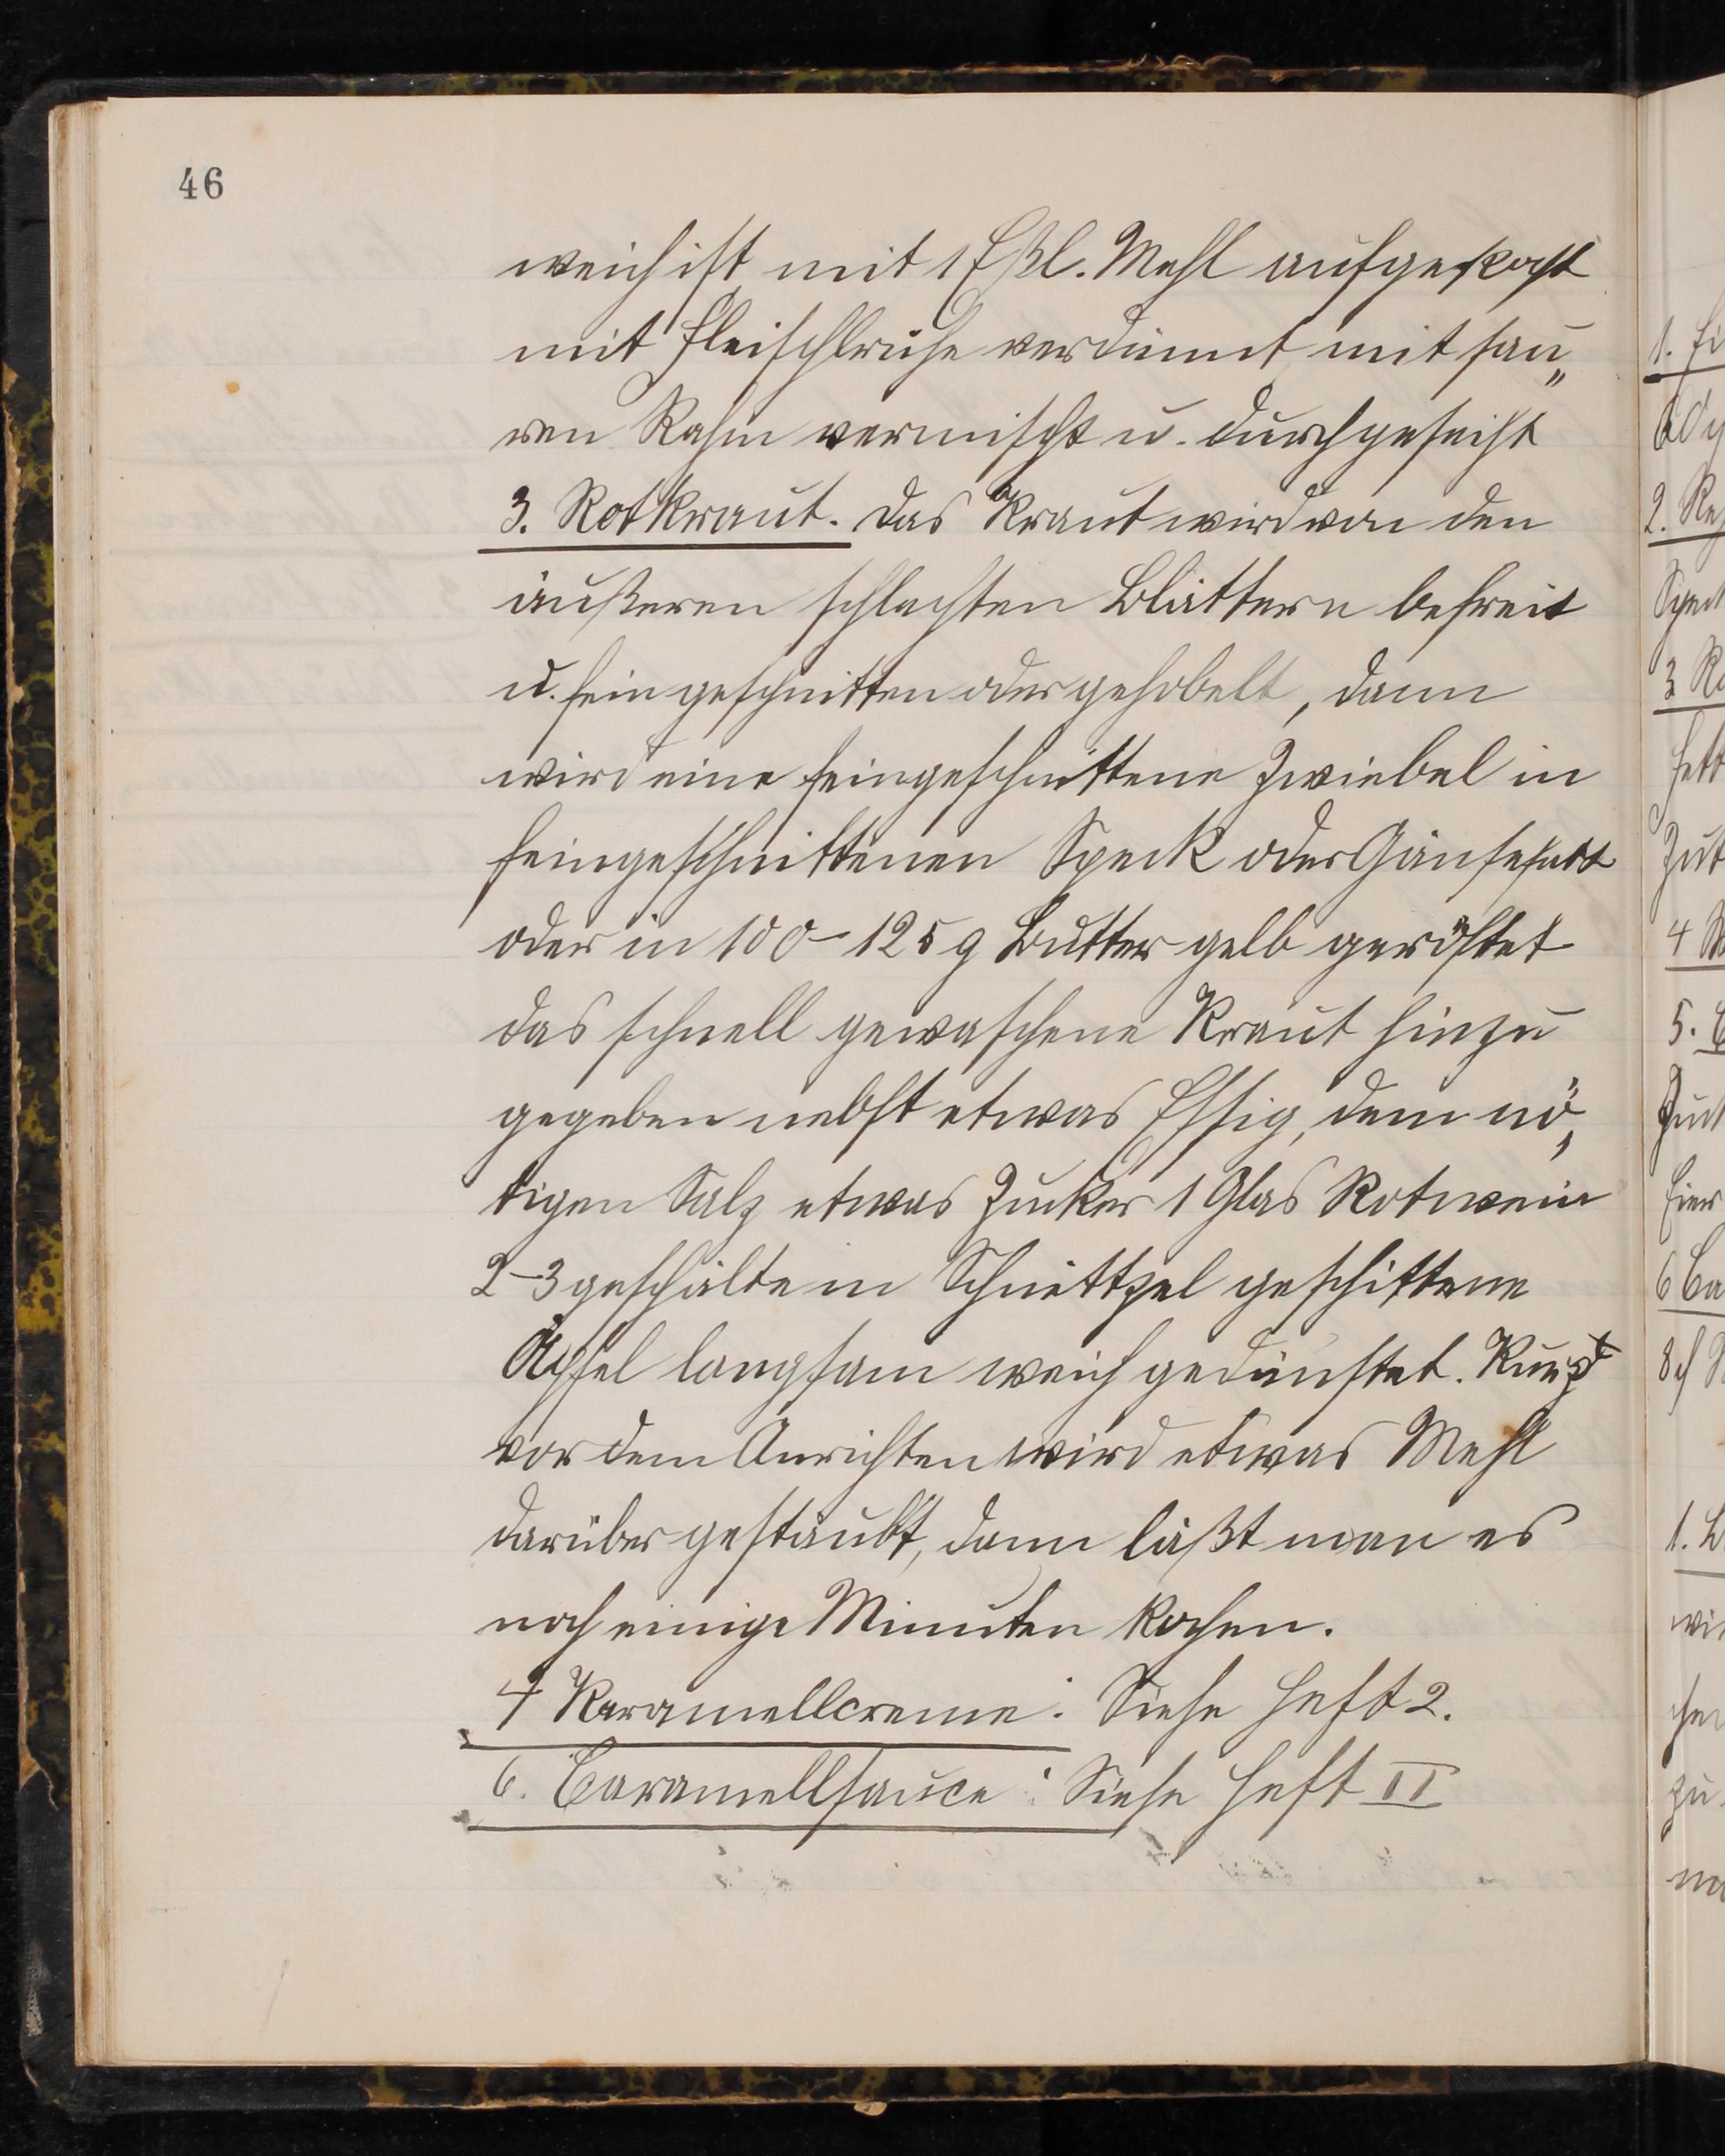 46
weich ist, mit 1 Eßl. Mehl aufgekocht
mit Fleischbrühe verdünnt mit sau„
ren Rahm vermischt u. durchgeseiht
3. Rotkraut. Das Kraut wird von den
äußeren schlechten Blättern befreit
u. fein geschnitten oder gehobelt, dann
wird eine feingeschnittene Zwiebel in
feingeschnittenen Speck oder Gänsefett
oder in 100–125 g Butter gelb geröstet
das schnell gewaschene Kraut hinzu
gegeben nebst etwas Essig, dem nö„
tigen Salz etwas Zucker 1 Glas Rotwein
2–3 geschälte in Schnittzel geschittene
Äpfel langsam weich gedünstet. Kurz
vor dem Anrichten wird etwas Mehl
darüber gestäubt, dann läßt man es
noch einige Minuten kochen.
4 Karamellcreme: Siehe Heft 2.
6. Caramellsauce: Siehe Heft II